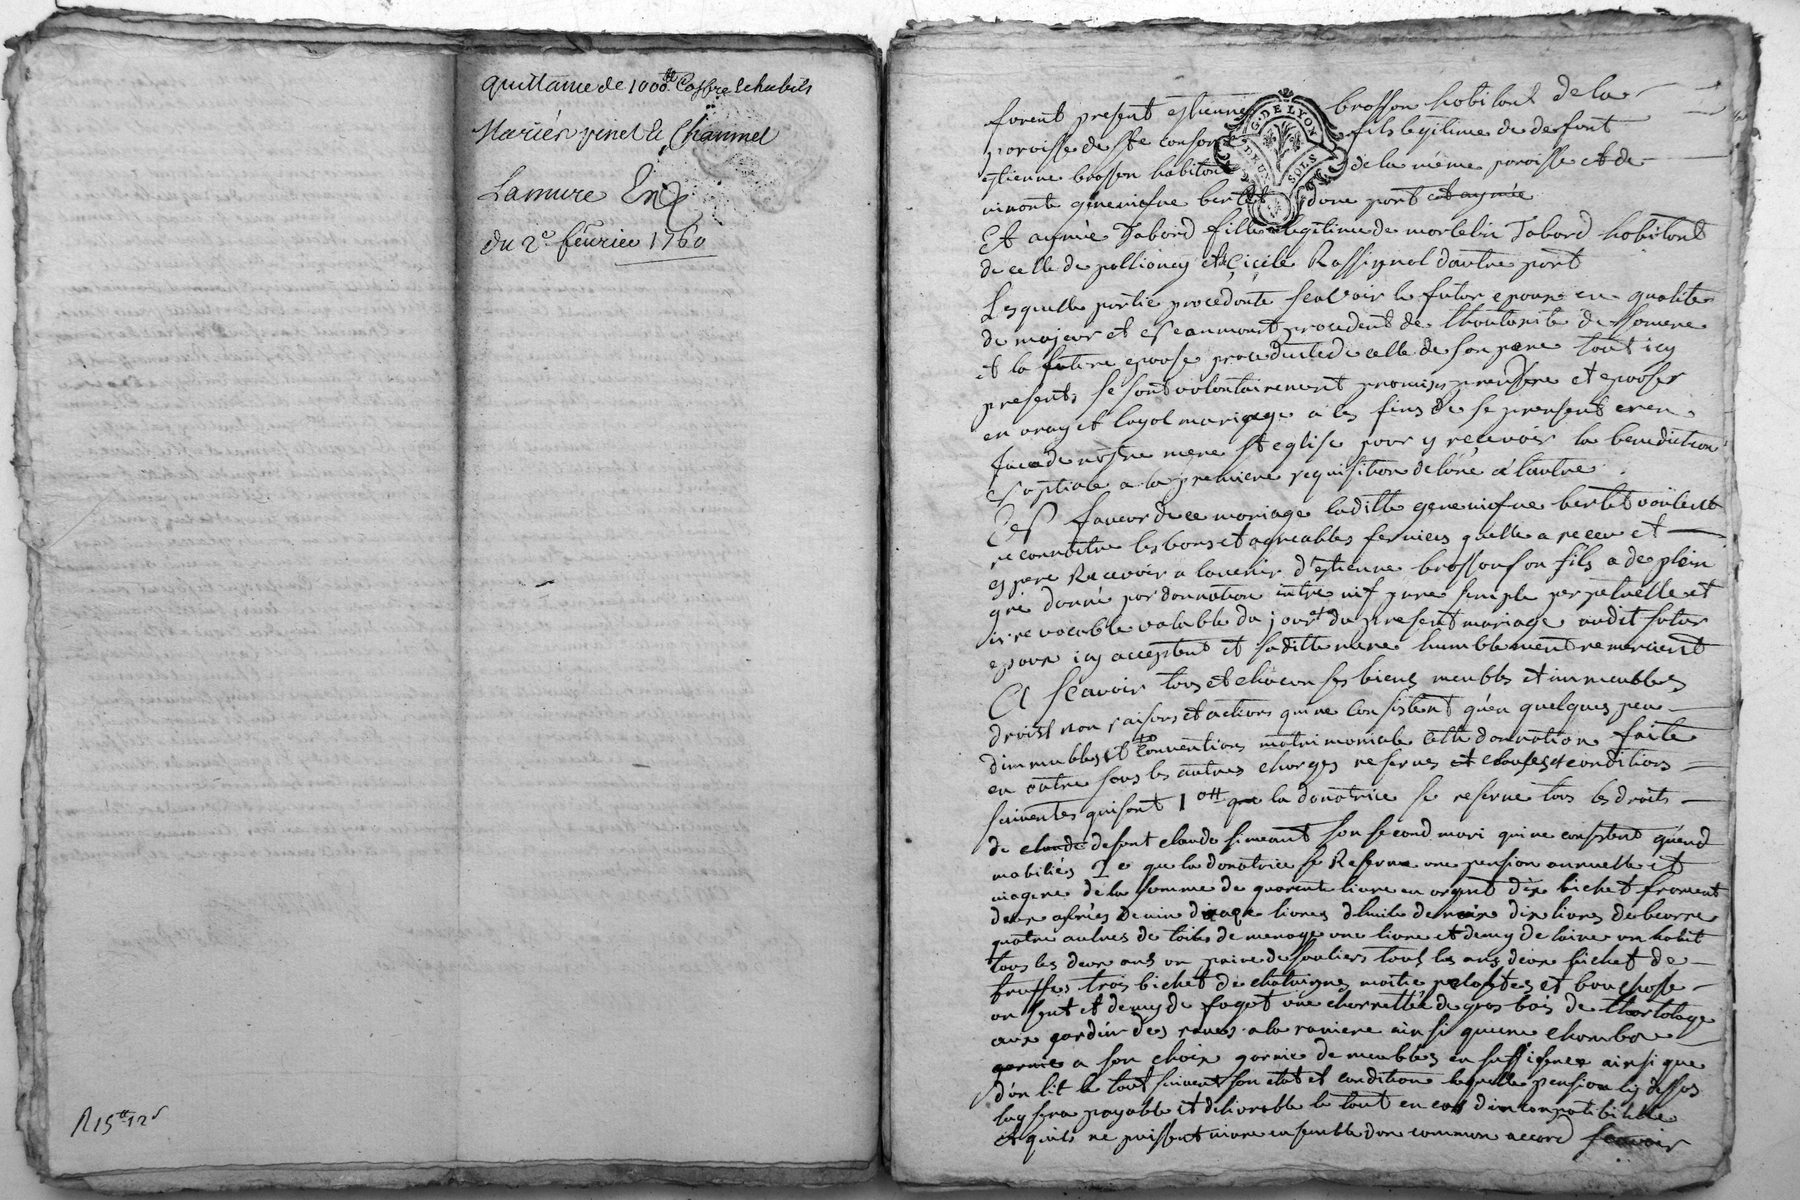 quittance de 1000ᵗᵗ Coffre & habits
Mariés pinet & Chammel
Lamure
du 2ᵉ février 1760
R 15ᵗᵗ 12ˢ
G. DE LYON
DEUX SOLS
furent present estienne brosson habitant de la
paroisse de Ste consorce fils legitime de deffunt
estienne brosson habitant de la méme paroisse et de
vivante genevieve bertet d'une part et aymée
Et aymée Tabard fille legitime de Tabard habitant
de celle de pollionay et de Cicile Rossignol d'autre part
Lesquelle partie procedante scavoir le futur epoux en qualité
de majeur et procedent de l'hautorité de sa mere
et la future epouse procedante de celle de son pere tout icy
presents se sont volontairement promis prendre et epouser
en vray et loyal mariage a les fins de se presenter en
face de nostre mere Ste eglise pour y recevoir la benediction
nuptiale a la premiere requisition de l'une a l'autre
En faveur de ce mariage laditte genevieve bertet voulent
reconnoitre les bons et agreables services quelle a receu et
espere Recevoir a lavenir d'estienne brosson son fils a de plein
gré donné par donnation entre vif pure simple perpetuelle et
irrevocable valable du jour du present mariage audit futur
epoux icy acceptent et saditte mere humblement remercient
A Scavoir tous et chacun ses biens meubles et immeubles
droits nom raisons et actions qui ne consistent qu'en quelques peu
dimmeubles et conventions matrimoniale cette donnation faite
en outre sous les autres charges reserves et clauses et conditions
suiventes qui sont 1° que la donatrice se reserve tous les droits
de claude defunt claude simeant son second mari qui ne consistent qu'en
mobiliés 2° que la donatrice se Reserve une pension annuelle et
viagere de la somme de quarente livre en argent dix bichet froment
deux asnées de vin livres d'huile de noix dix livres de beurre
quatre aulnes de toiles de menage une livre et demy de laine un habit
tous les deux ans un paire de souliers tous les ans deux bichet de
truffes trois bichet de chataignes moitie pelautes et
un sent et demy de fagot une charrettée de gros bois de l'hortolage
aux jardin des raves a la raviere ainsi quune chambre
garnie a son choix garnie de meubles en suffisence ainsi que
d'un lit le tout suivent son etat et condition laquelle pension cy dessus
luy sera payable et delivrable le tout en cas dincompatibilité
et quils ne puissent vivre ensemble d'un commun accord scavoir